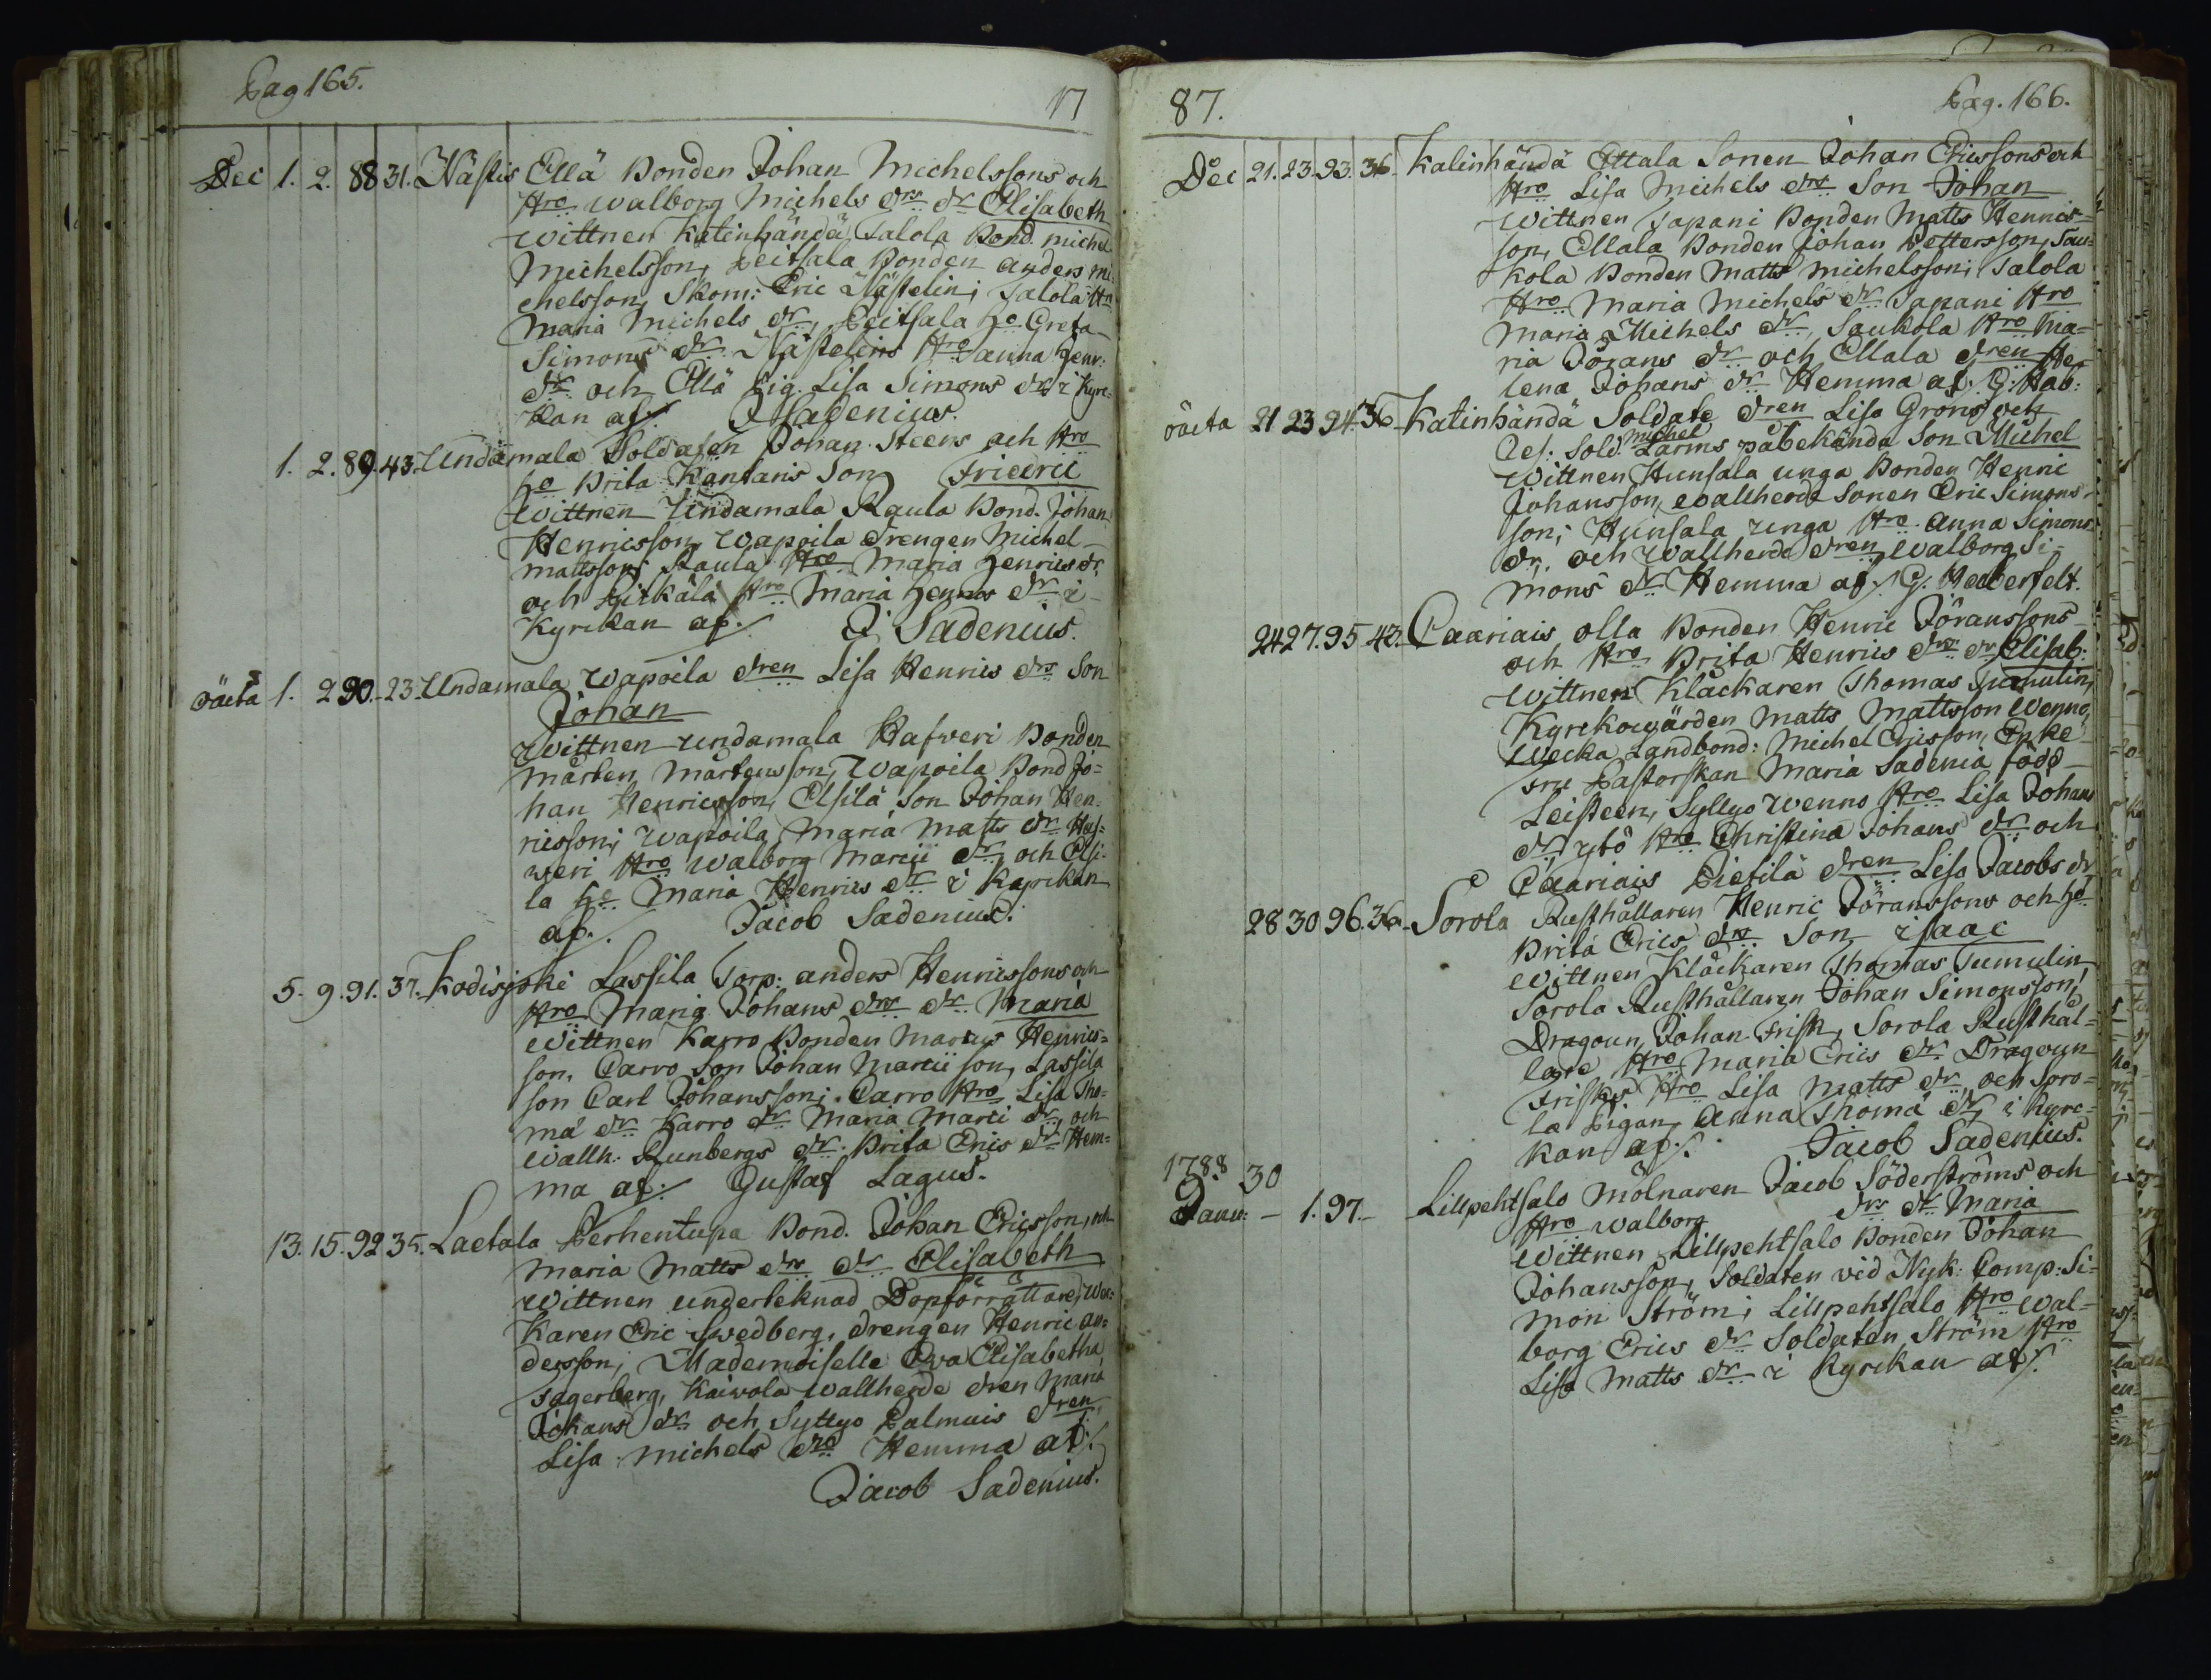 Pag 165.
17
Dec 1. 2. 88 31. Nästis Ellä Bonden Johan Michelssons och
Hro Walborg Michels drs dr Elisabeth
Wittnen Katinhändä Talola Bond. michel
Michelsson, Peitsala Bonden anders mi-
chelsson, Skom: Eric Nästelin; Talola H
Maria Michels dr, Peitsala ho Greta
Simons dr Nästelins Hro anna Henr:
dr och Ellä Pig. Lisa Simons dr i Kyrc-
kan af. J Sadenius.
1. 2. 89. 43 Undamala Soldaten Johan Steens och Hro
ho Brita Kantaris Son Fricdric
Wittnen Undamala Raula Bond. Johan
Henricsson, Wapoila drengen Michel
mattsson; Raula Hro Maria Henrics dr
och Pitkälä Hro Maria Henrics dr i
Kyrckan af. J Sadenius.
oäcta 1. 2 90. 23. Undamala Wapoila dren Lisa Henrics drs Son
Johan
Wittnen Undamala Hafweri Bonden
mårten Mårtensson, Wapoila Bond Jo=
han Henricsson, Elsilä Son Johan Hen-
ricsson; Wapoila Maria Matts dr Haf=
weri Hro Walborg Marcii dr, och Elsi-
la ho Maria Henrics dr i Kyrckan
af. Jacob Sadenius.
5. 9. 91. 37. Kodisjoki Lassila Torp: anders Henricssons och
Hro Maria Johans drs dr Maria
Wittnen Karro Bonden Marcus Henrics=
son, Carro Son Johan Marcii son, Lassila
son Carl Johansson; Carro Hro Lisa Tho-
mä dr Karro dr Maria Marci dr, och
Wallh: Runbergs dr: Brita Erics dr Hem=
ma af. Gustaf Lagus.
13. 15. 92 35. Laetala Perhentupa Bond. Johan Ericsson, och
Maria Matts drs dr Elisabeth
Wittnen underteknad Dopförrättare,
Karen Eric Swedberg, drengen Henric an-
dersson; Mademoiselle Ewa Elisabetha
Fagerberg, Kaiwola Wallherde dren Maria
Johans dr och Syttyo Palmuis dren,
Lisa Michels dro Hemma af.
Jacob Sadenius.
87.
Pag. 166.
Dec 21. 23. 93. 36. Katinhändä Ettala Sonen Johan Ericssons och
Hro Lisa Michels drs Son Johan
Wittnen Tapani Bonden Matts Henrics=
son, Ellala Bonden Johan Pettersson, Sau=
kola Bonden Matts Michelsson; Talola
Hro Maria Michels dr Tapani Hro
Maria Michels dr, Saukola Hro Ma=
ria Jörans dr och Ellala dren He-
lena Johans dr Hemma af. G: Hab:
oäcta 21 23 94. 36 Katinhändä Soldate dren Lisa Grons och
Ref: Sold. michel Larms påbekända Son Michel
Wittnen Hunsala unga Bonden Henric
Johansson, Wallherde Sonen Eric Simons-
son; Hunsala unga Hro anna Simons
dr, och Wallherde dren Walborg Si-
mons dr Hemma af. G. Haberfelt.
24 27. 95 43. Caariais olla Bonden Henric Jöranssons
och Hro Brita Henrics drs dr Elisab:
Wittnen Klåckaren Thomas Tumulin,
Kyrckowärden Matts Mattsson Wenno,
Wecka Landbond: Michel Ericsson, Enke
fru Pastorskan Maria Sadenia född
Leisteen, Syllyo Wenno Hro Lisa Johans
dr ytö Hro Christina Johans dr och
Caariais Pietilä dren Lisa Jacobs dr
28 30 96. 36 Sorola Rusthållaren Henric Jöranssons och ho
Brita Erics drs Son isaac
Wittnen Klåckaren Thomas Tumulin
Sorola Rusthållaren Johan Simonsson,
Dragoun Johan Frisk, Sorola Rusthål=
lare Hro Maria Erics dr Dragoun
Frisks Hro Lisa Matts dr, och Soro=
la Pigan anna Thomä dr, i Kyrc-
kan af. Jacob Sadenius.
1788 30
Janu: - 1. 97. Lillpehtsalo Mölnaren Jacob Söderströms och
Hro Walborg drs dr Maria
Wittnen Lillpehtsalo Bonden Johan
Johansson, Soldaten vid Nyk: Comp: Si=
mon Ström; Lillpehtsalo Hro Wal=
borg Erics dr Soldaten Ström Hro
Lisa Matts dr i Kyrckan af.